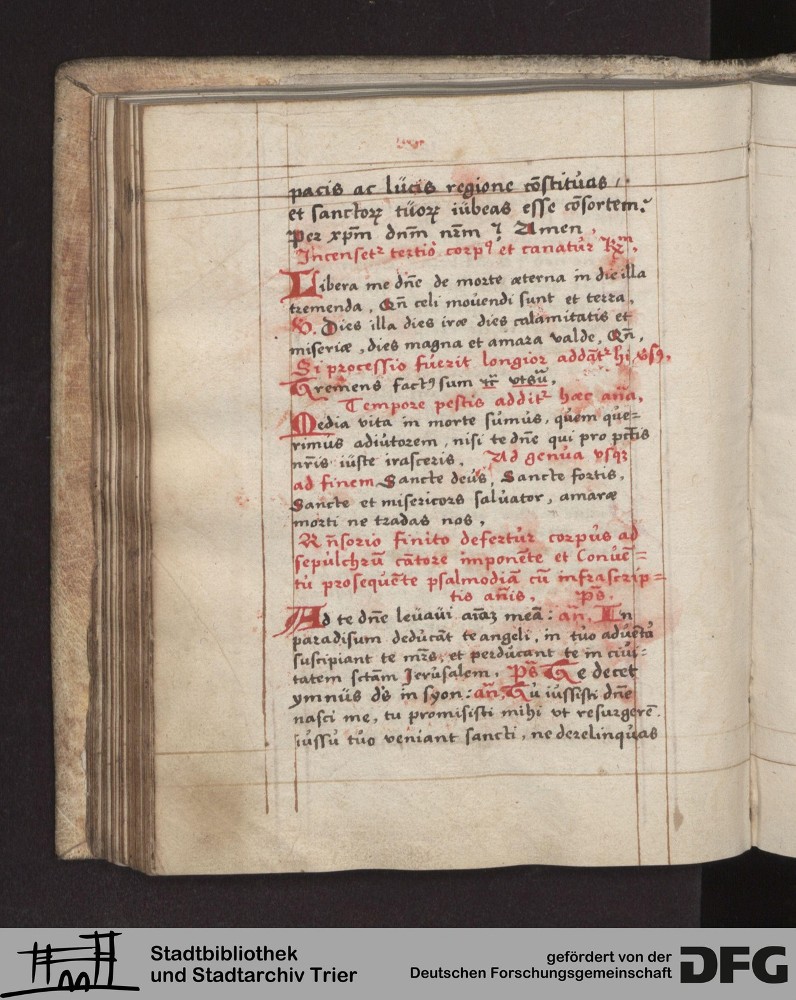 pacis ac lucis regione cōstituas,
et sanctoꝝ tuoꝝ iubeas esse cōsortem.
Per xp̄m dn̄m nr̄m ⁊ Amen.
Incensetᷣ tertio corpꝰ et canatur
Libera me dn̄e de morte æterna in die illa
tremenda, Qn̄ celi mouendi sunt et terra.
V. Dies illa dies iræ dies calamitatis et
miseriæ, dies magna et amara valde, Qn̄,
Si processio fuerit longior addāt hi vsꝰ.
Tremens factꝰ sum vt su.
Tempore pestis additᷣ hæc ana.
Media vita in morte sumus, quem que=
rimus adiutorem, nisi te dn̄e qui pro pctis
nr̄is iuste irasceris. Ad genua vsqꝫ
ad finem Sancte deus, Sancte fortis,
Sancte et misericors saluator, amaræ
morti ne tradas nos.
Rn̄sorio finito defertur corpus ad
sepulchrū cātore imponēte et Conuē=
tu prosequēte psalmodiā cū infrascrip=
tis an̄is. ps̄.
Ad te dn̄e leuaui aīaꝫ meā: an̄. In
paradisum deducāt te angeli, in tuo aduētu
suscipiant te mr̄s, et perducant te in ciui=
tatem sctām Jerusalem. ps̄ Te decet
ymnus ds̄ in syon: an̄. Tu iussisti dn̄e
nasci me, tu promisisti mihi vt resurgerē.
iussu tuo veniant sancti, ne derelinquas
Stadtbibliothek
und Stadtarchiv Trier
gefördert von der
Deutschen Forschungsgemeinschaft
DFG